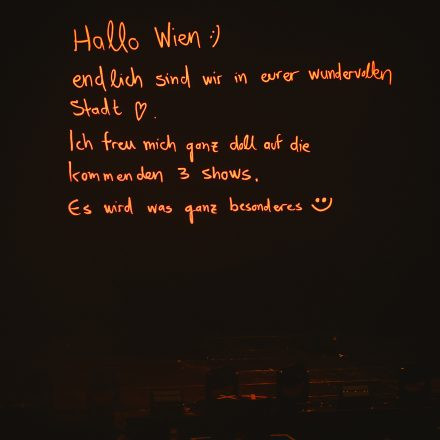 Hallo Wien :)
endlich sind wir in eurer wundervollen
Stadt ♡.
Ich freu mich ganz doll auf die
kommenden 3 shows.
Es wird was ganz besonderes :)